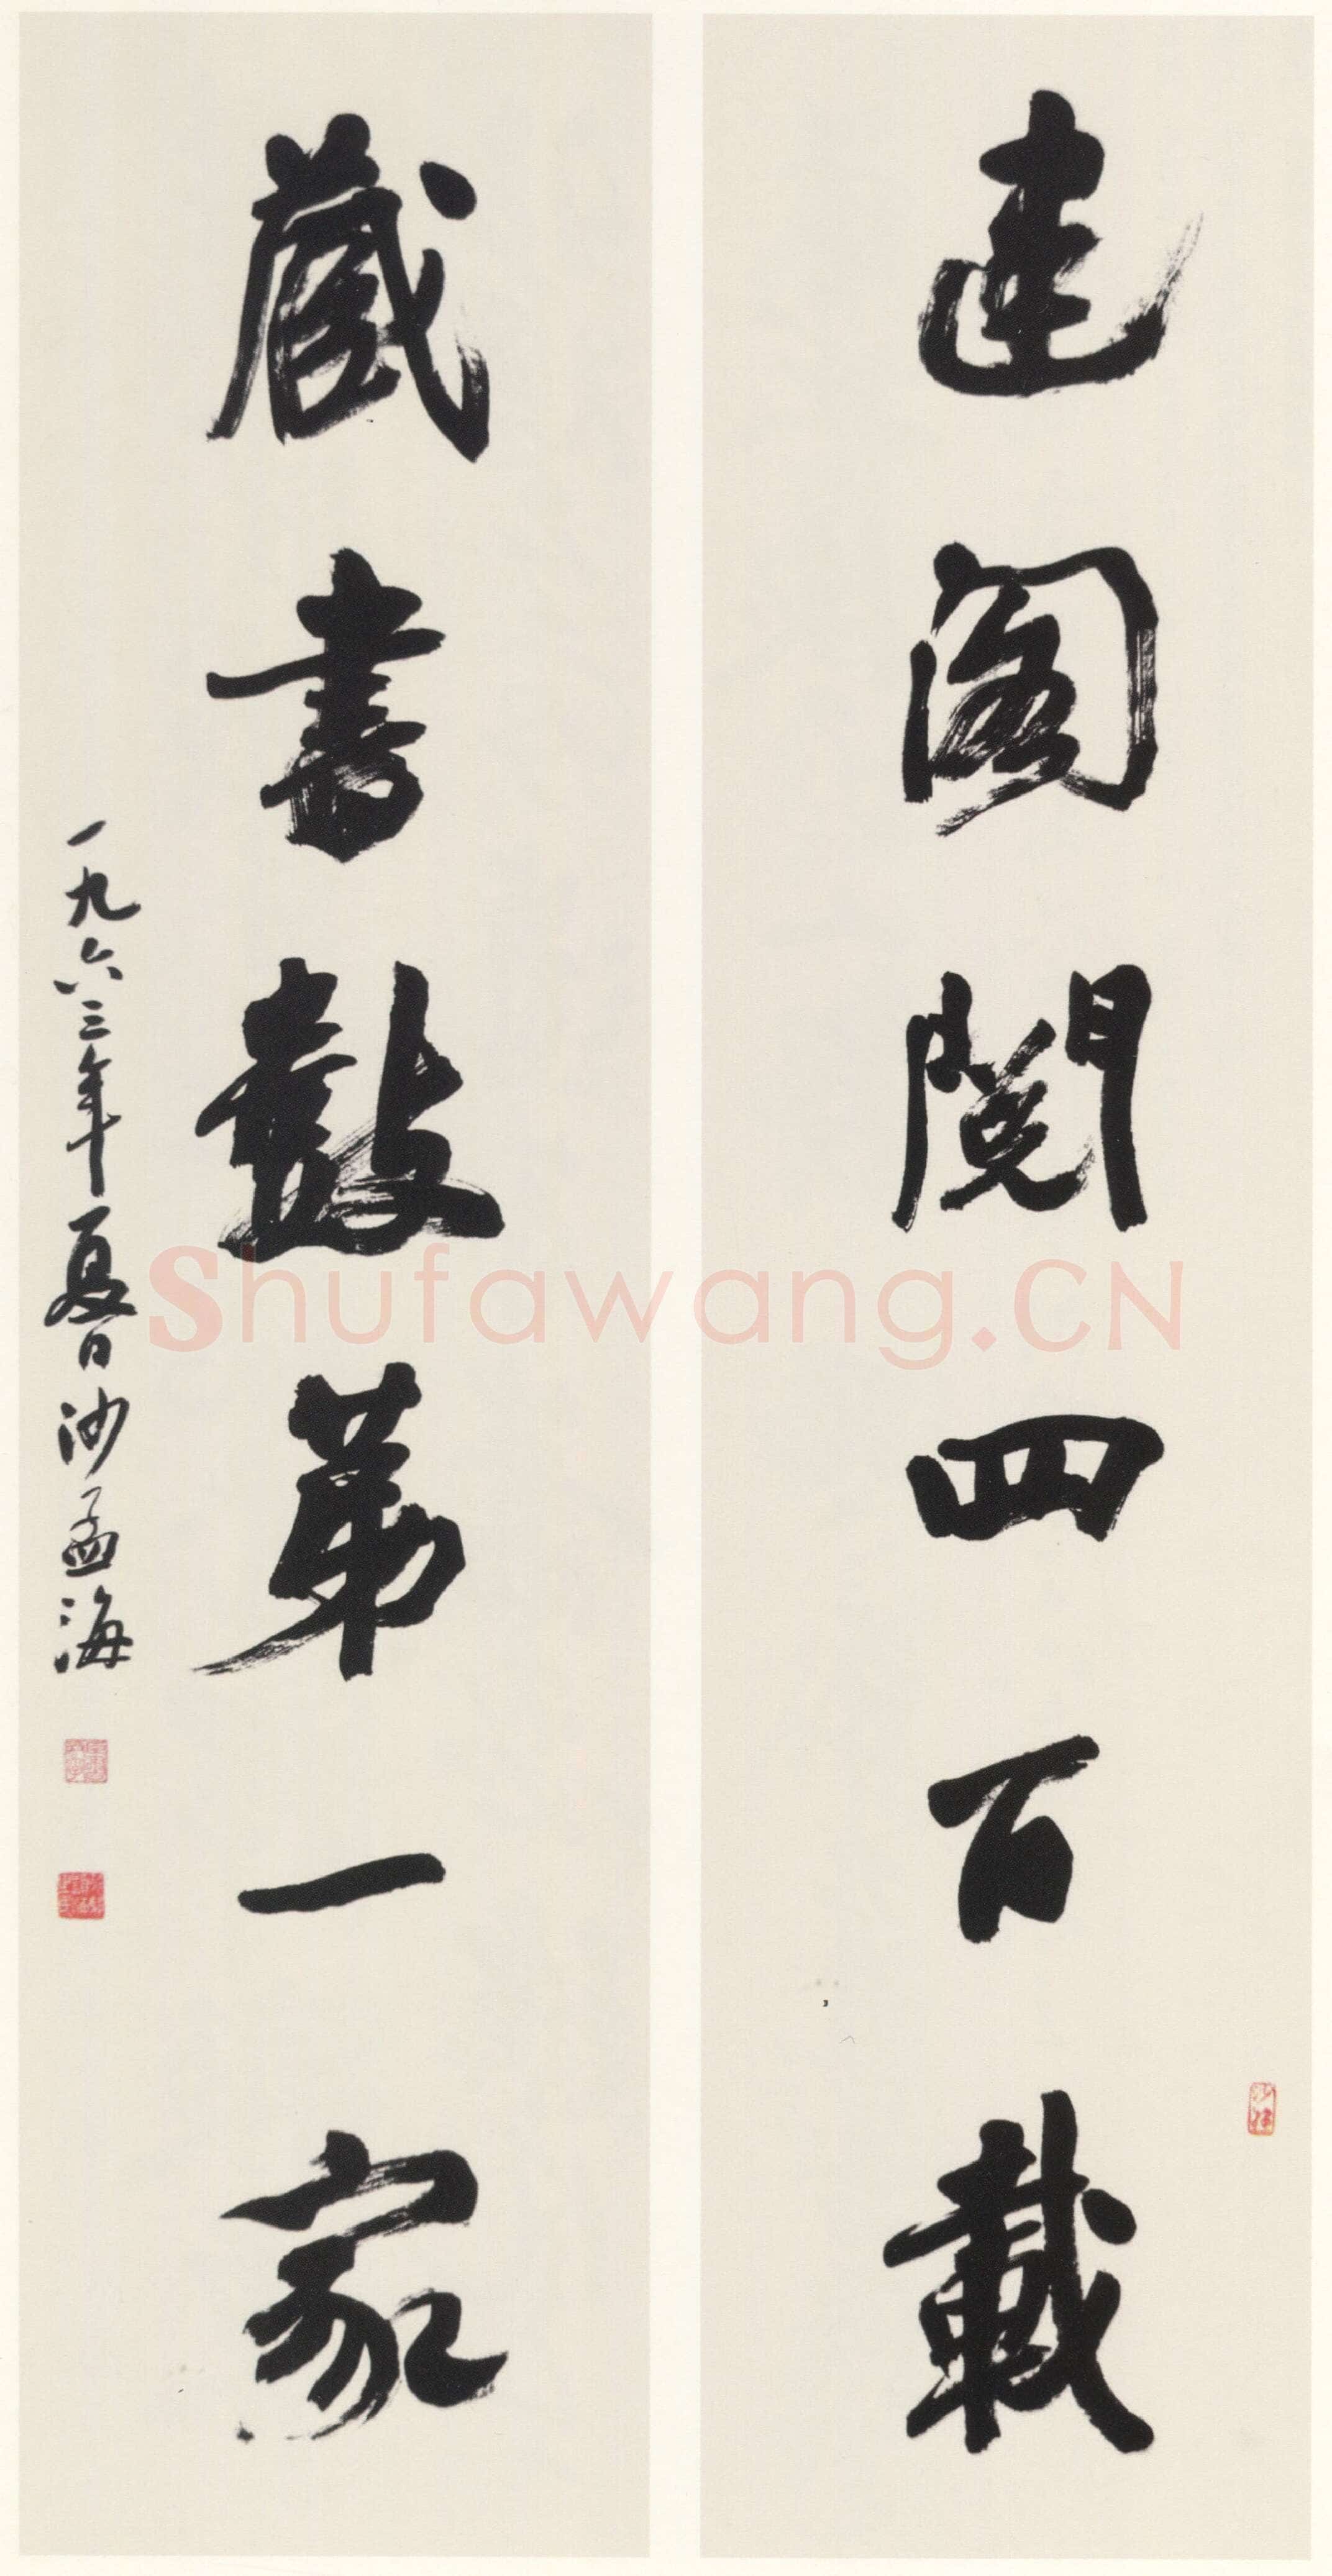 建阁阅四百载
藏書數第一家
一九六三年夏日沙孟海
Shufawang.CN